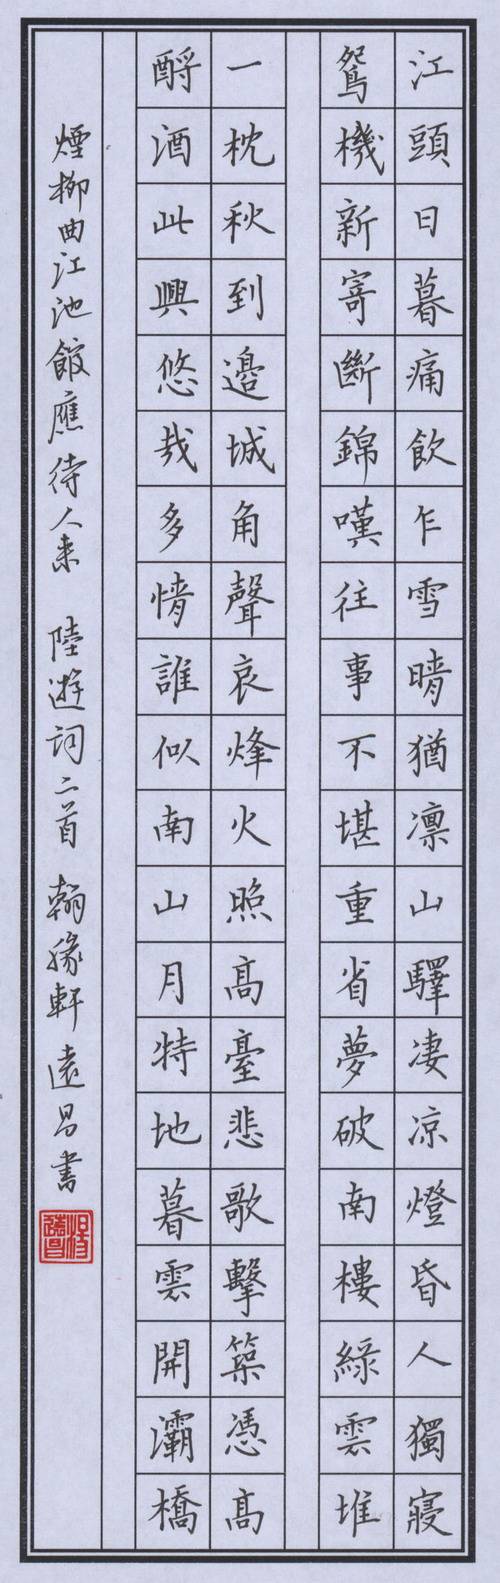 江頭日暮痛飲乍雪晴猶凛山驛凄凉燈昏人獨寢
鴛機新寄斷錦嘆往事不堪重省夢破南樓綠雲堆
一枕秋到邊城角聲哀烽火照高臺悲歌擊築憑高
酹酒此興悠哉多情誰似南山月特地暮雲開灞橋
煙柳曲江池館應待人来 陸遊詞二首 翰緣軒 遠昌書